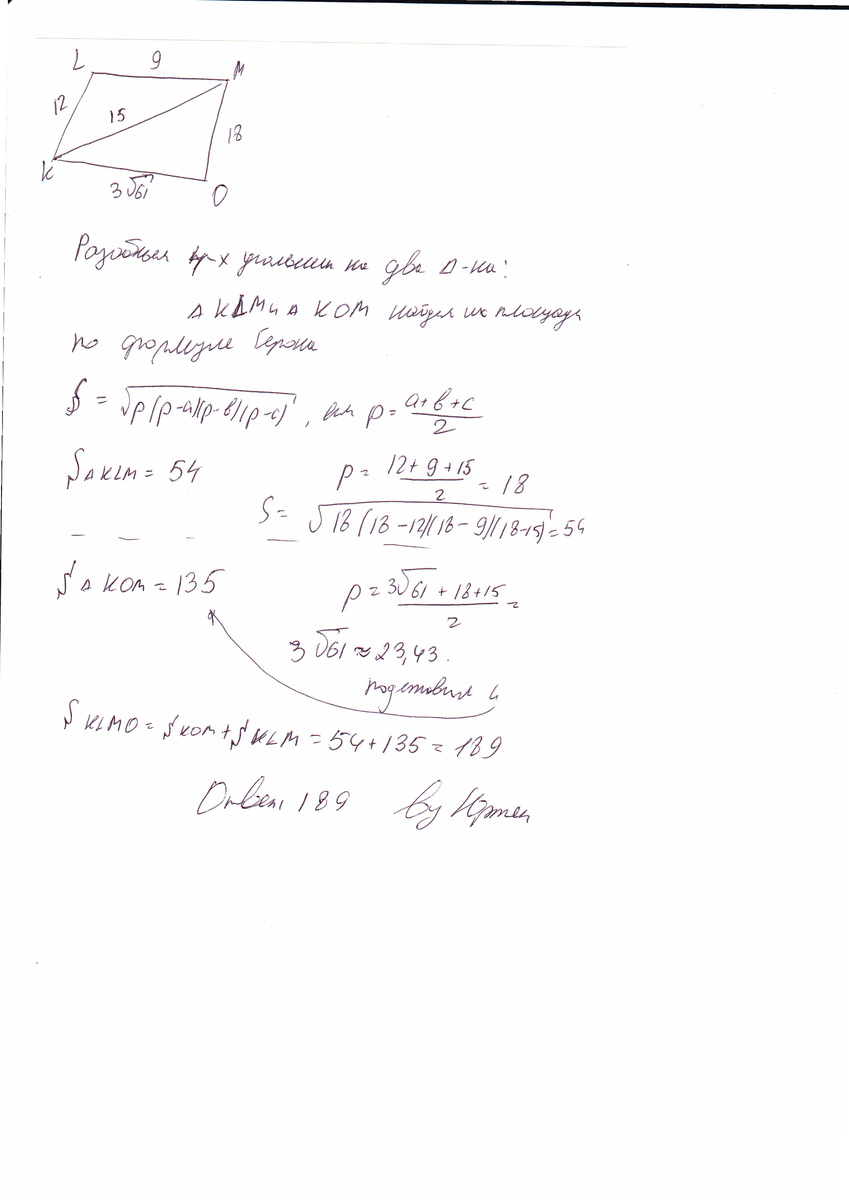 L 9 M
12 15 18
K 3√61 O
Разобьем 4-х угольник на два Δ-ка:
Δ KLM и Δ KOM найдем их площади
по формуле Герона
S = √p(p-a)(p-b)(p-c), p = a+b+c / 2
S Δ KLM = 54 p = 12+9+15 / 2 = 18
S = √18(18-12)(18-9)(18-15) = 54
S Δ KOM = 135 p = 3√61 + 18 + 15 / 2 =
3√61 ≈ 23,43.
подставил и
S KLMO = S KOM + S KLM = 54 + 135 = 189
Ответ 189 by